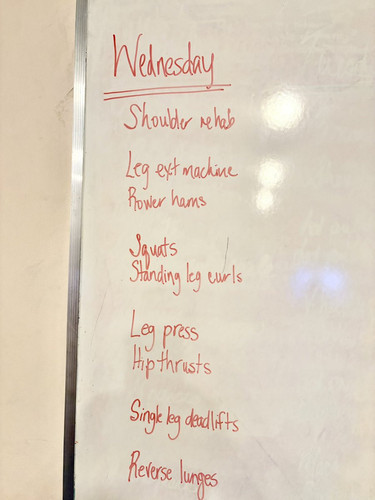 Wednesday
Shoulder rehab
Leg ext machine
Rower hams
Squats
Standing leg curls
Leg press
Hip thrusts
Single leg deadlifts
Reverse lunges